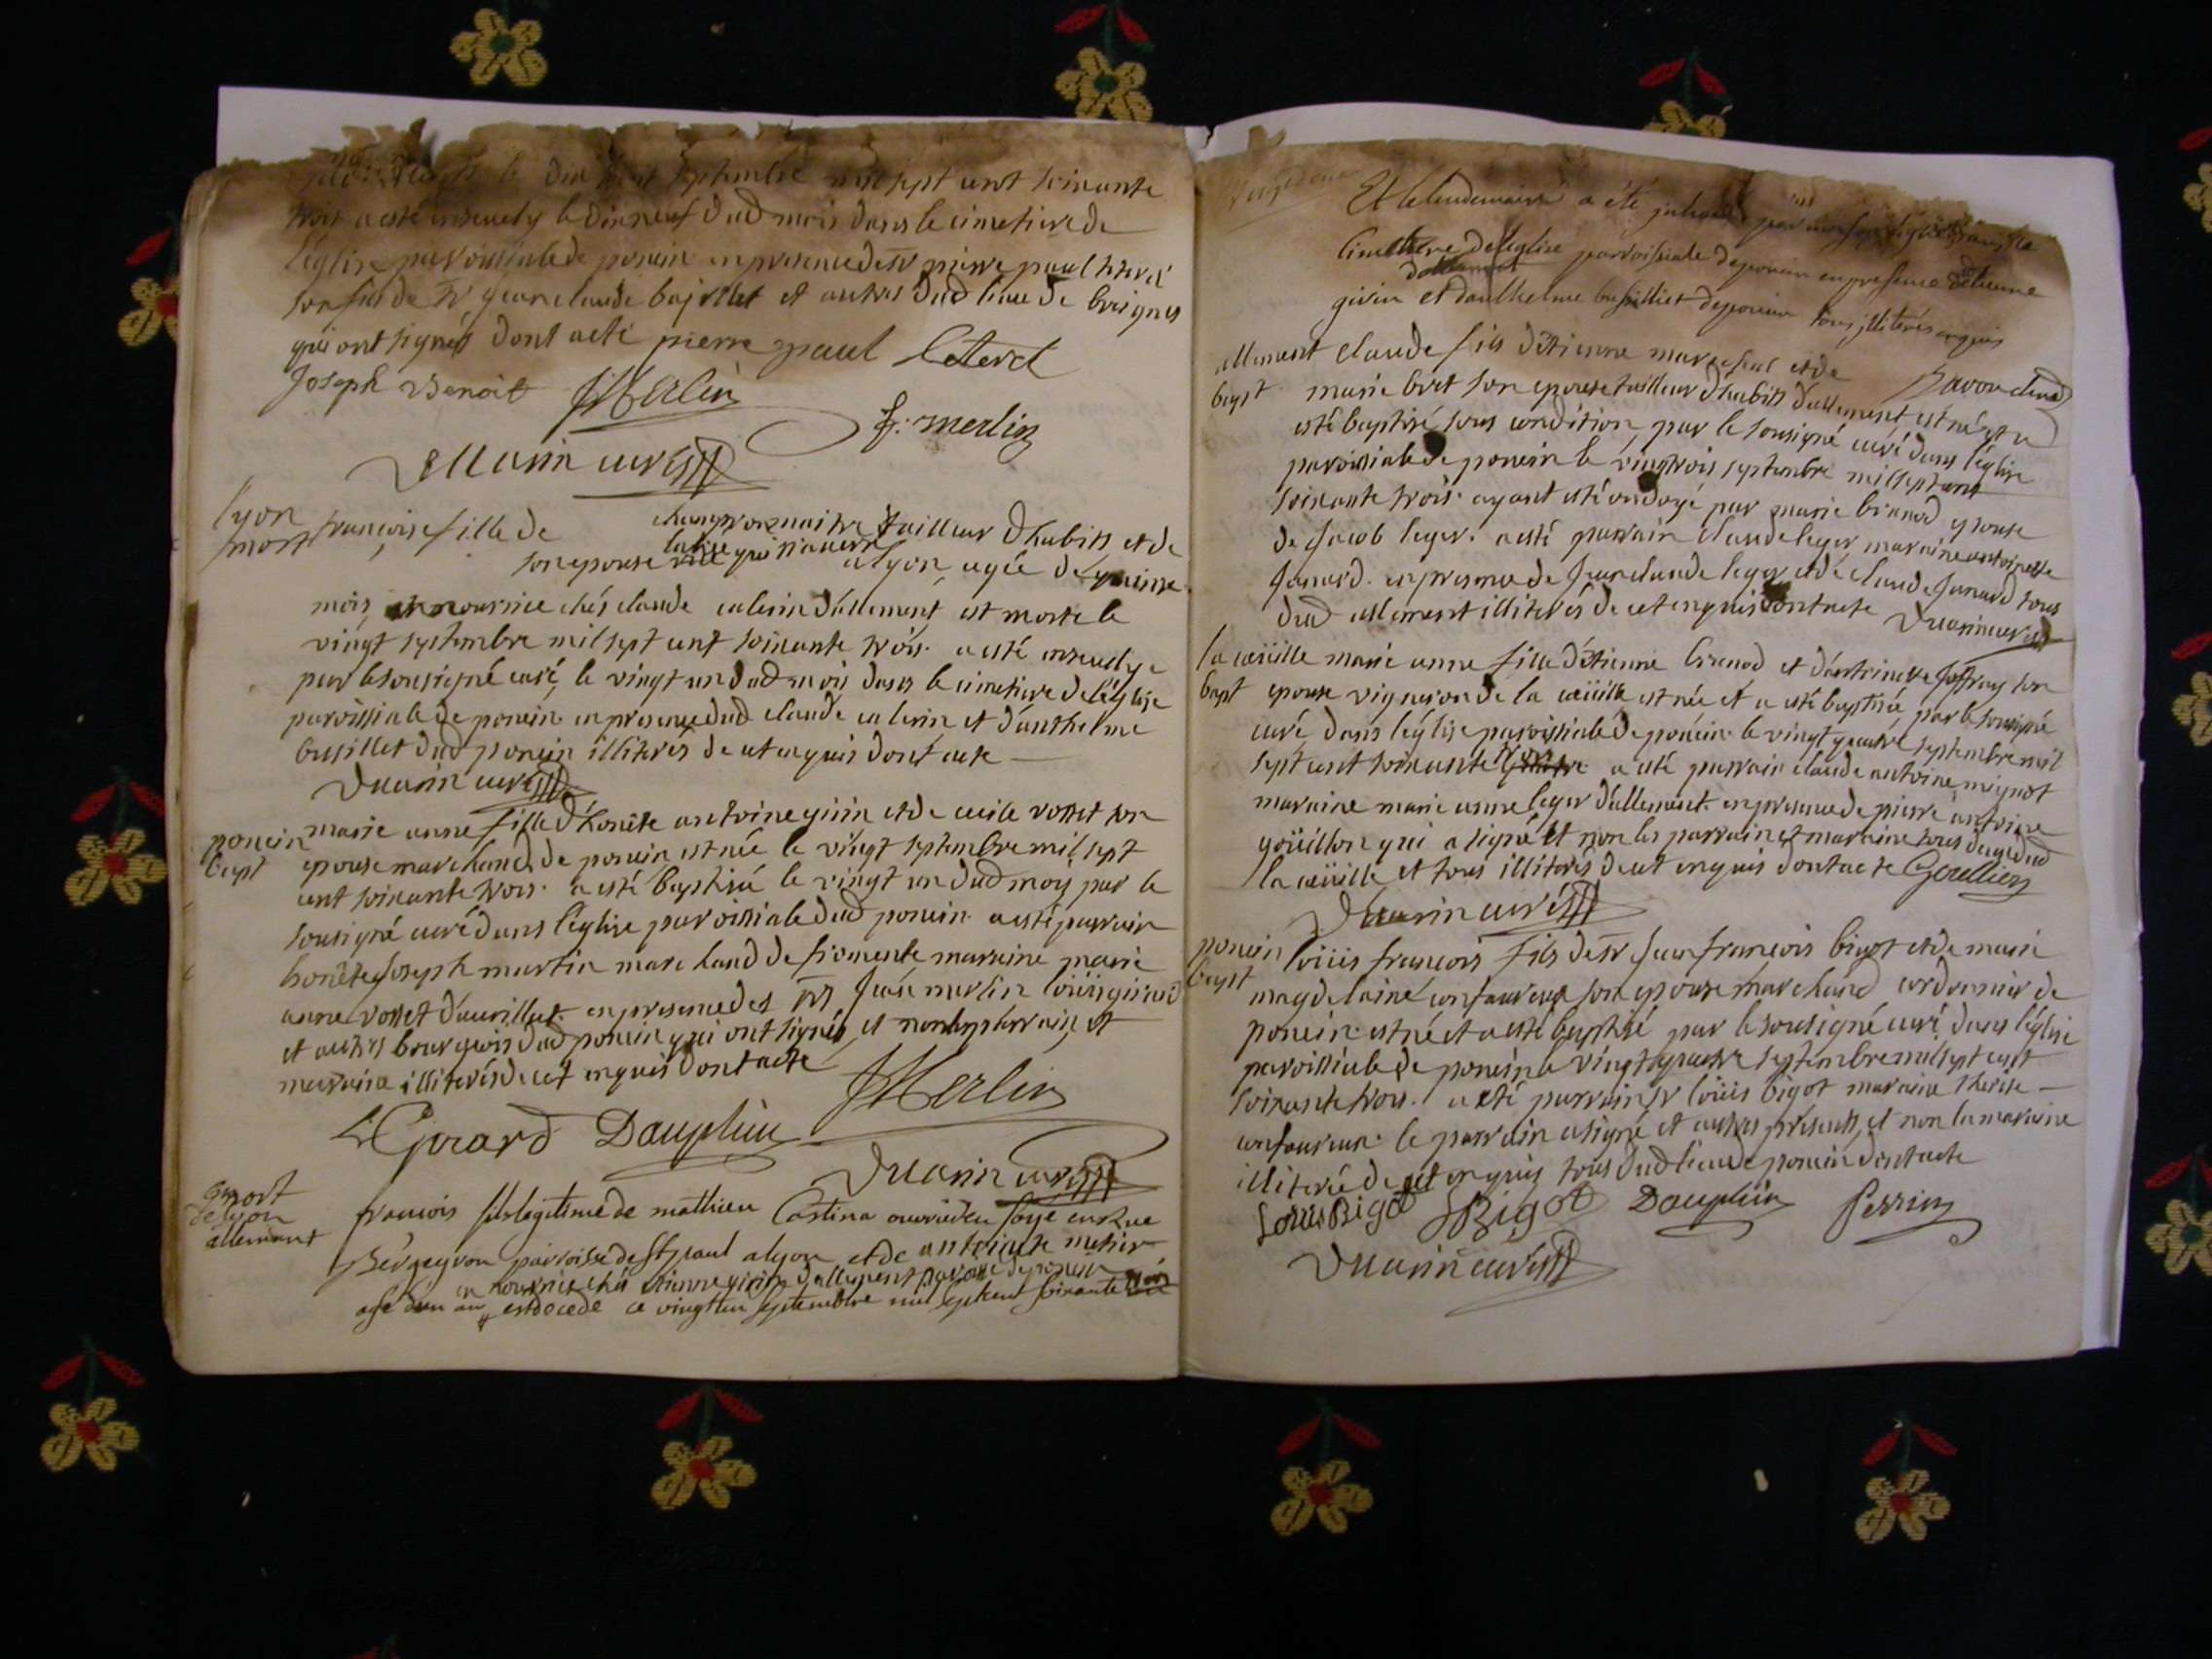 le dix huit septembre mil sept cent soixante
trois a esté enseuely le dixneuf dud mois dans le cimetiere de
l'église paroissiale de poncin en presence de sr pierre paul
son fils de sr jean claude et autres dud lieu de
qui ont signés dont acte pierre paul
Joseph Benoit JMerlin
f: merlin
Duarin curé
lyon
mort
françoise fille de maitre tailleur d'habits et de
son epouse a lyon, agée de quinze
mois, en nourrice chés claude d'allement, est morte le
vingt septembre mil sept cent soixante trois. a esté enseuelye
par le sousigné curé, le vingt un dud mois dans le cimetiere de l'églize
paroissiale de poncin en presence dud claude et d'anthelme
busillet dud poncin illiterés de ce enquis dont acte
Duarin curé
poncin
bapt
marie anne fille d'honête antoine girin et de cecile rosset son
epouse marchand de poncin est née le vingt septembre mil sept
cent soixante trois. a esté baptisée le vingt un dud moy par le
sousigné curé dans l'églize paroissiale dud poncin a esté parrain
honête joseph martin marchand de maraine marie
anne rosset en presence des srs jean merlin loüis girard
et autres bourgeois dud poncin qui ont signés, et non les parrain, et
marraine illiterés de ce enquis dont acte
LGirard Dauphin JMerlin
Duarin curé
mort
de lyon
allemant
francois fils legitime de mathieu Castina ouvrier en soye en Rue
paroisse de St paul a lyon et de antoinete metier
en nourrice chés etienne girin d'allement paroisse de poncin
age dun an est decede ce vingt un septembre mil sept cent soixante trois
Et le lendemain a été
cimetiere de l'eglise parroissiale de poncin en presence d'etienne
d'allement
girin et d'anthelme busilliet de poncin tous illiterés enquis
allement
bapt
claude fils d'étienne mareschal et de
marie bret son epouse tailleur d'habits d'allement, est né et a
esté baptisé sous condition, par le sousigné curé dans l'église
paroissiale de poncin le vingt trois septembre mil sept cent
soixante trois. ayant esté ondoyé par marie brunod epouse
de jacob leger. a esté parrain claude leger maraine antoinette
Junard. en presence de jean claude leger et de claude Junard tous
dud allement illiterés de ce enquis dont acte Duarin curé
la cueille
bapt
marie anne fille d'étienne brunod et d'antoinette joffray son
epouse vigneron de la cueille est née et a esté baptisée par le sousigné
curé dans l'église paroissiale de poncin le vingt quatre septembre mil
sept cent soixante trois a esté parrain claude antoine mignot
maraine marie anne leger d'allement. en presence de pierre antoine
goüillon qui a signé et non les parrain et maraine tous
la cueille et tous illiterés de ce enquis dont acte
Duarin curé
poncin
bapt
loüis francois fils de sr jean francois bigot et de marie
magdelaine confavreux son epouse marchand cordonnier de
poncin est né et a esté baptisé par le sousigné curé dans l'église
paroissiale de poncin le vingt quatre septembre mil sept cent
soixante trois. a esté parrain sr loüis bigot maraine therese
confavreux le parrain a signé et autres présents, et non la maraine
illiterée de ce enquis tous dud lieu de poncin dont acte
Louis Bigot JBigot Dauphin Perrin
Duarin curé